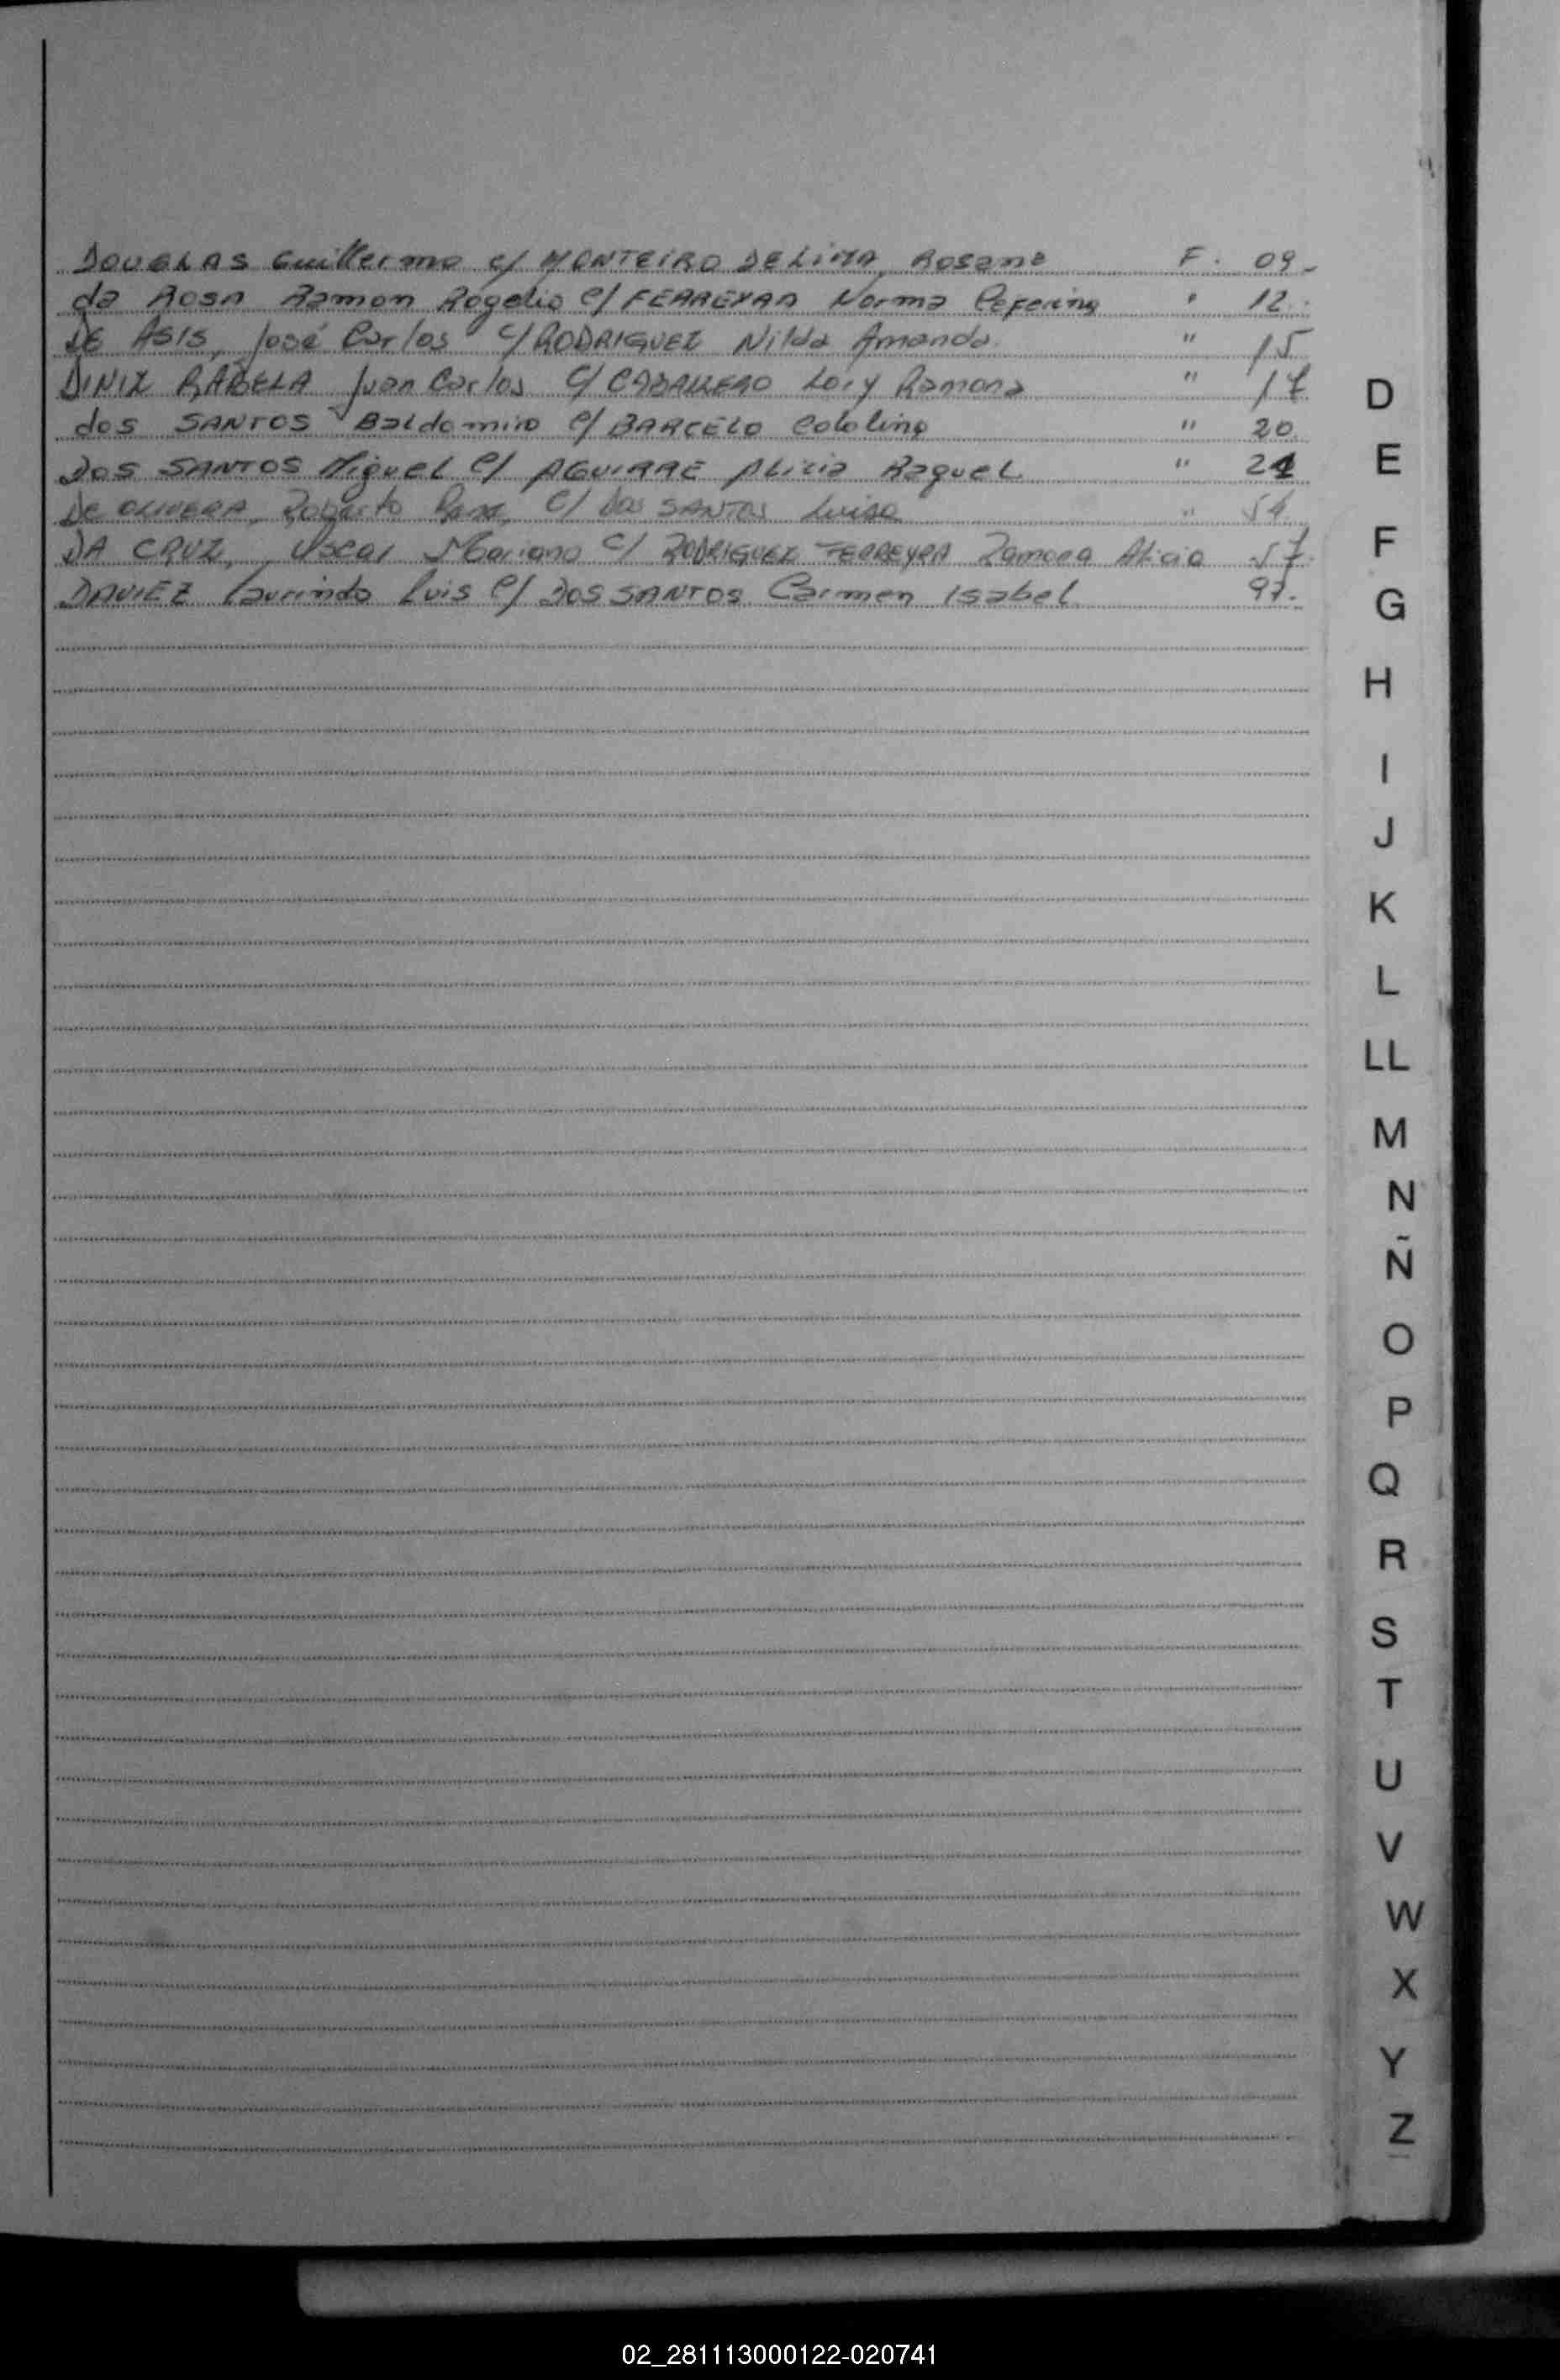 DOUGLAS Guillermo c/ MONTEIRO DE LIMA, Rosane F. 09.-
da Rosa Ramon Rogelio c/ FERREYRA Norma Ceferina " 12.-
DE ASIS, José Carlos c/ RODRIGUEZ Nilda Amanda " 15
DINIZ RABELA Juan Carlos c/ CABALLERO Lory Ramona " 17
dos SANTOS Baldomiro c/ BARCELO Catalina " 20
DOS SANTOS Miguel c/ AGUIRRE Alicia Raquel " 21
DE OLIVERA, Roberto c/ Dos SANTOS Luisa " 54
DA CRUZ, Oscar Mariano c/ RODRIGUEZ FERREYRA Ramona Alicia 57
DAVIEZ Laurindo Luis c/ DOS SANTOS Carmen Isabel 97.-
D
E
F
G
H
I
J
K
L
LL
M
N
Ñ
O
P
Q
R
S
T
U
V
W
X
Y
Z
02_281113000122-020741